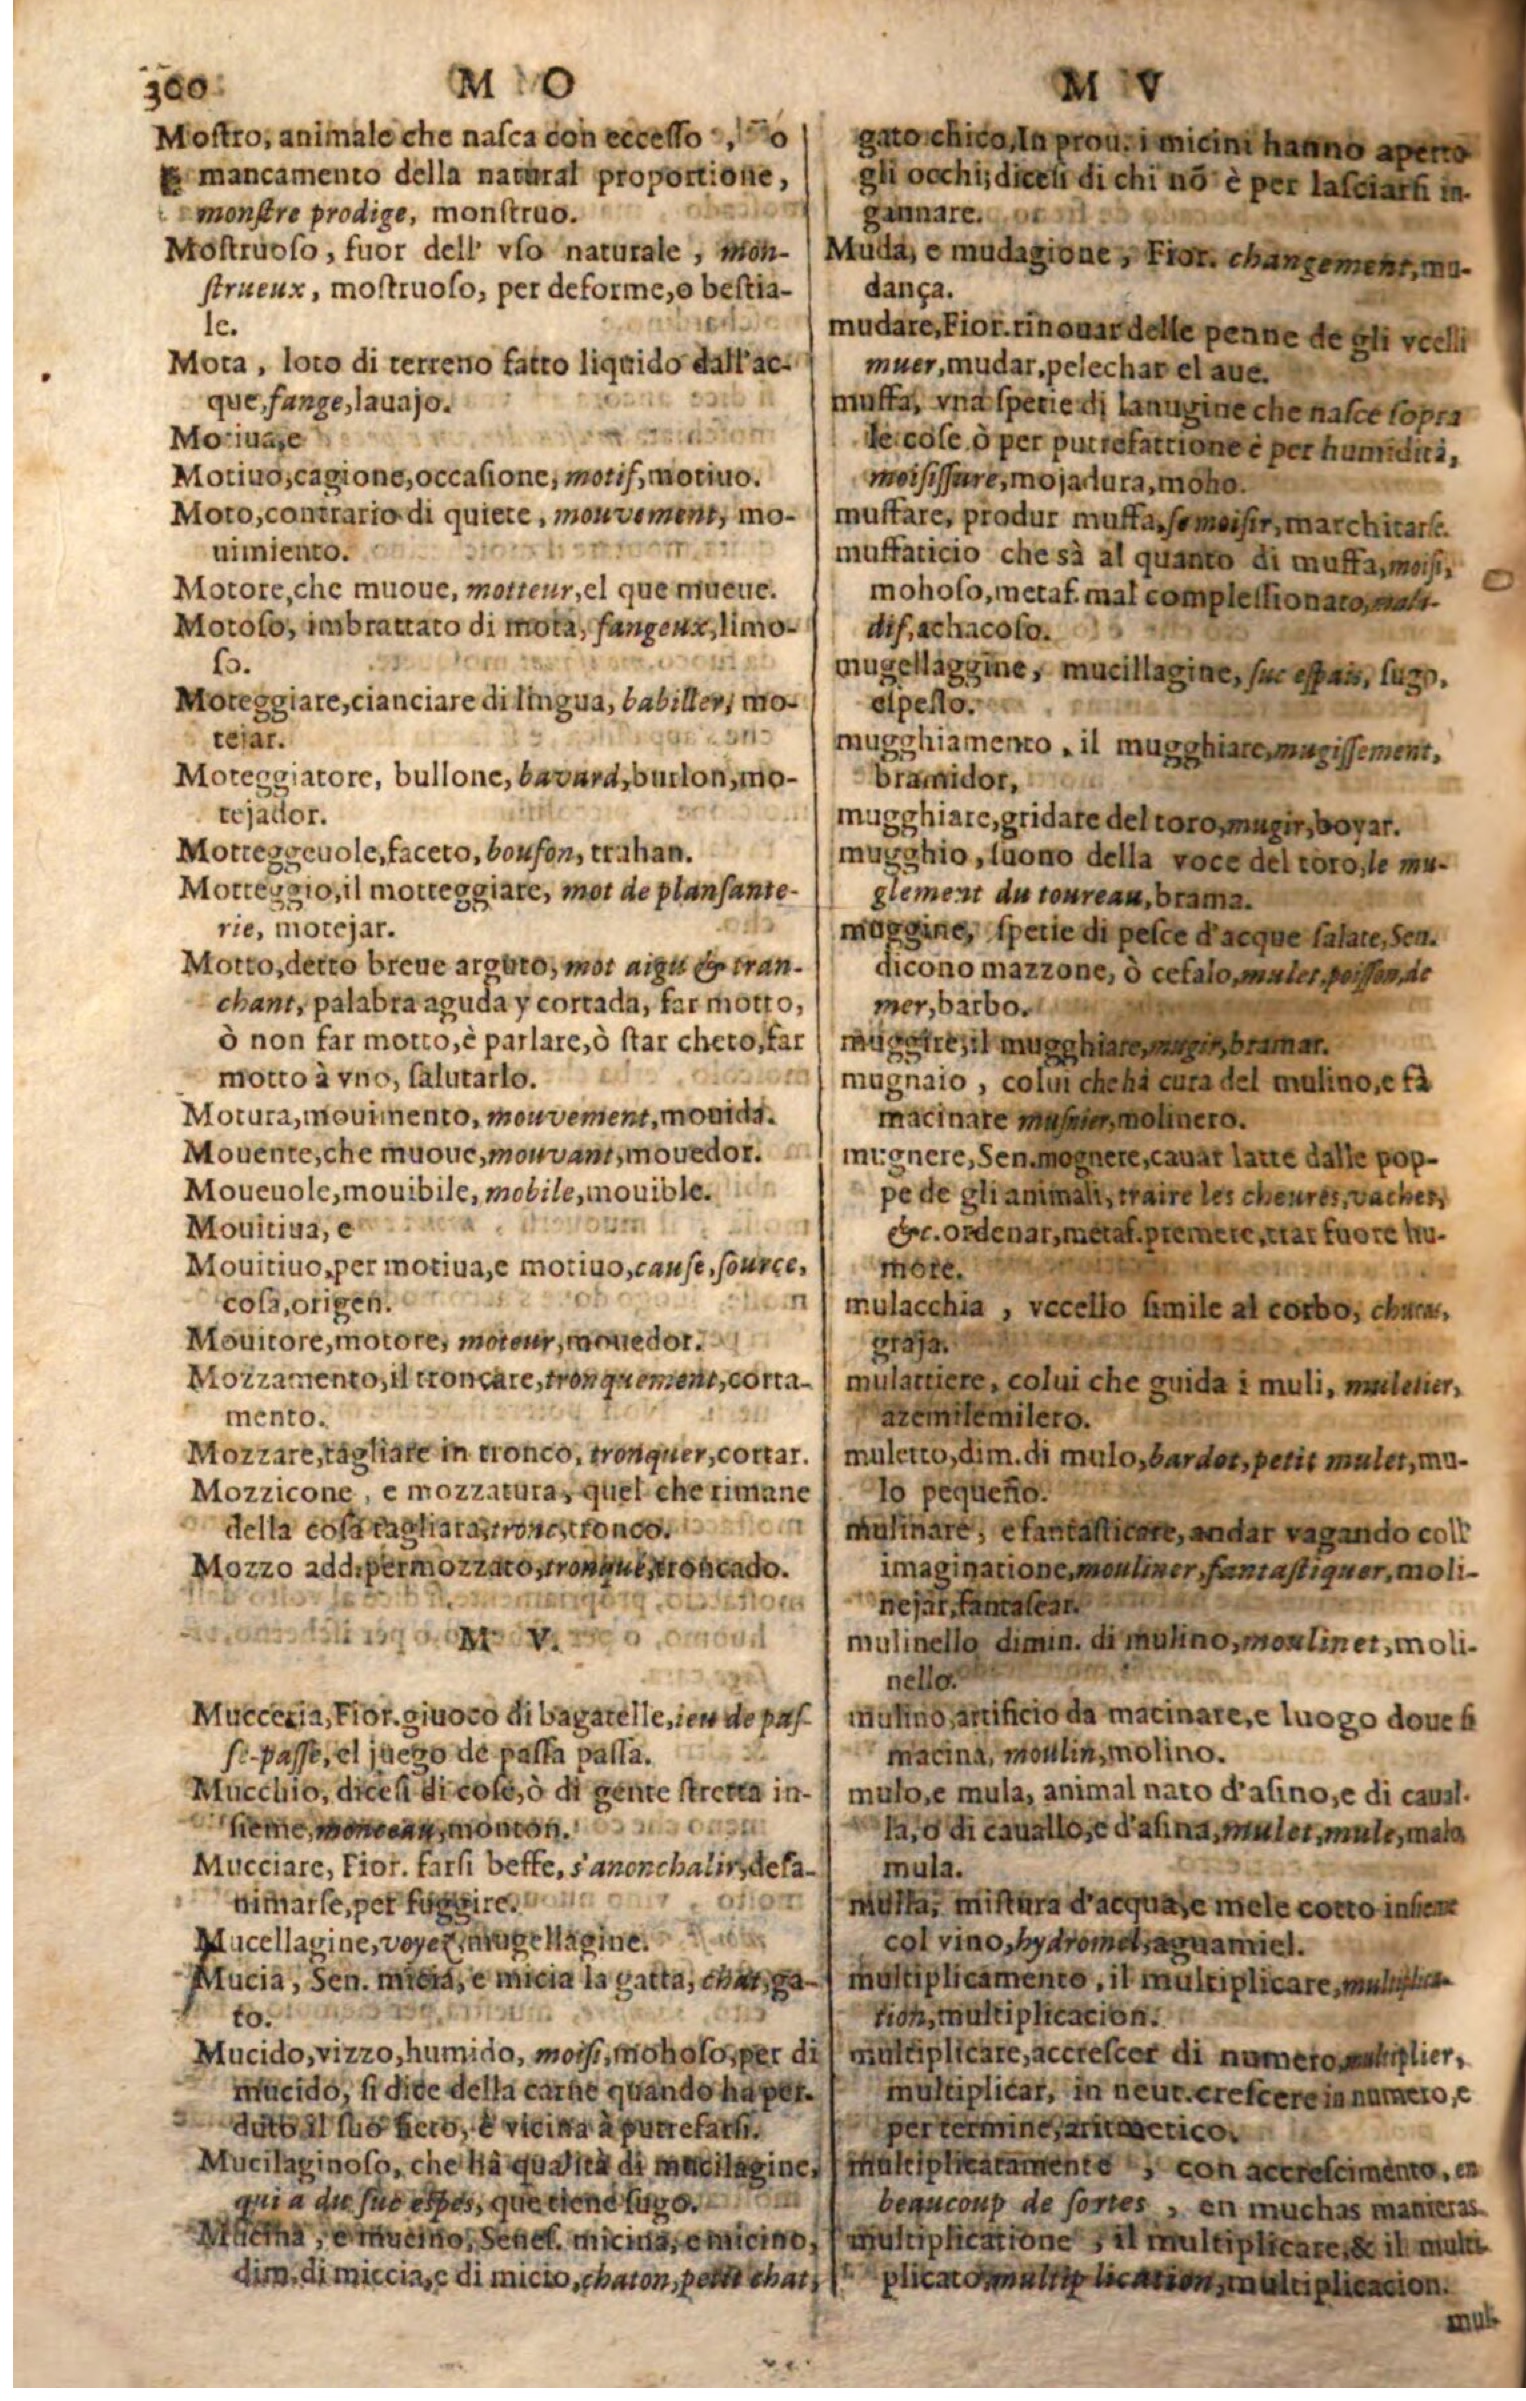 360 M O M V
Moſtro, animale che naſca con ecceſſo, o
mancamento della natural proportione,
monſtre prodige, monſtruo.
Moſtruoſo, fuor dell' vſo naturale, mon-
ſtrueux, moſtruoſo, per deforme, o beſtia-
le.
Mota, loto di terreno fatto liquido dall'ac-
que, fange, lauajo.
Motiua, e
Motiuo, cagione, occaſione, motif, motiuo.
Moto, contrario di quiete, mouvement, mo-
uimiento.
Motore, che muoue, motteur, el que mueue.
Motoſo, imbrattato di mota, fangeux, limo-
ſo.
Moteggiare, cianciare di lingua, babiller, mo-
tejar.
Moteggiatore, bullone, bavard, burlon, mo-
tejador.
Motteggeuole, faceto, boufon, truhan.
Motteggio, il motteggiare, mot de planſante-
rie, motejar.
Motto, detto breue arguto, mot aigu & tran-
chant, palabra aguda y cortada, far motto,
ò non far motto, è parlare, ò ſtar cheto, far
motto à vno, ſalutarlo.
Motura, mouimento, mouvement, mouida.
Mouente, che muoue, mouvant, mouedor.
Moueuole, mouibile, mobile, mouible.
Mouitiua, e
Mouitiuo, per motiua, e motiuo, cauſe, ſource,
coſa, origen.
Mouitore, motore, moteur, mouedor.
Mozzamento, il troncare, tronquement, corta-
mento.
Mozzare, tagliare in tronco, tronquer, cortar.
Mozzicone, e mozzatura, quel che rimane
della coſa tagliata, tronc, tronco.
Mozzo add. per mozzato, tronqué, troncado.
M V.
Mucceria, Fior. giuoco di bagatelle, ieu de paſ-
ſe-paſſe, el juego de paſſa paſſa.
Mucchio, diceſi di coſe, ò di gente ſtretta in-
ſieme, monceau, monton.
Mucciare, Fior. farſi beffe, s'anonchalir, deſa-
nimarſe, per fuggire.
Mucellagine, voyez, mugellagine.
Mucia, Sen. micia, e micia la gatta, chat, ga-
to.
Mucido, vizzo, humido, moiſi, mohoſo, per di
mucido, ſi dice della carne quando ha per-
duto il ſuo fiero, è vicina à putrefarſi.
Mucilaginoſo, che hà qualità di mucilagine,
qui a du ſuc eſpés, que tiene ſugo.
Mucina, e mucino, Seneſ. micina, e micino,
dim. di miccia, e di micio, chaton, petit chat,
gato chico, In prou. i micini hanno aperto
gli occhi; diceſi di chi nō è per laſciarſi in-
gannare.
Muda, e mudagione, Fior. changement, mu-
dança.
mudare, Fior. rinouar delle penne de gli vcelli
muer, mudar, pelechar el aue.
muffa, vna ſpetie di lanugine che naſce ſopra
le coſe ò per putrefattione è per humidità,
moiſiſſure, mojadura, moho.
muffare, produr muffa, ſe moiſir, marchitarſe.
muffaticio che sà al quanto di muffa, moiſi,
mohoſo, metaf. mal compleſſionato, mala-
dif, achacoſo.
mugellaggine, mucillagine, ſuc eſpais, ſugo,
eſpeſſo.
mugghiamento, il mugghiare, mugiſſement,
bramidor,
mugghiare, gridare del toro, mugir, boyar.
mugghio, ſuono della voce del toro, le mu-
glement du toureau, brama.
muggine, ſpetie di peſce d'acque ſalate, Sen.
dicono mazzone, ò cefalo, mulet, poiſſon de
mer, barbo.
muggire, il mugghiare, mugir, bramar.
mugnaio, colui che hà cura del mulino, e fà
macinare muſnier, molinero.
mugnere, Sen. mognere, cauar latte dalle pop-
pe de gli animali, traire les cheures, vaches,
&c. ordenar, metaf. premere, trar fuore hu-
more.
mulacchia, vccello ſimile al corbo, chucas,
graja.
mulattiere, colui che guida i muli, muletier,
azemilemilero.
muletto, dim. di mulo, bardot, petit mulet, mu-
lo pequeño.
mulinare, e fantaſticare, andar vagando coll'
imaginatione, mouliner, fantaſtiquer, moli-
nejar, fantaſear.
mulinello dimin. di mulino, moulinet, moli-
nello.
mulino, artificio da macinare, e luogo doue ſi
macina, moulin, molino.
mulo, e mula, animal nato d'aſino, e di caual-
la, o di cauallo, e d'aſina, mulet, mule, malo
mula.
mulſa, miſtura d'acqua, e mele cotto inſieme
col vino, hydromel, aguamiel.
multiplicamento, il multiplicare, multiplica-
tion, multiplicacion.
multiplicare, accreſcer di numero, multiplier,
multiplicar, in neut. creſcere in numero, e
per termine, aritmetico.
multiplicatamente, con accreſcimento, en
beaucoup de ſortes, en muchas manieras
multiplicatione, il multiplicare, & il multi-
plicato, multiplication, multiplicacion.
mul-